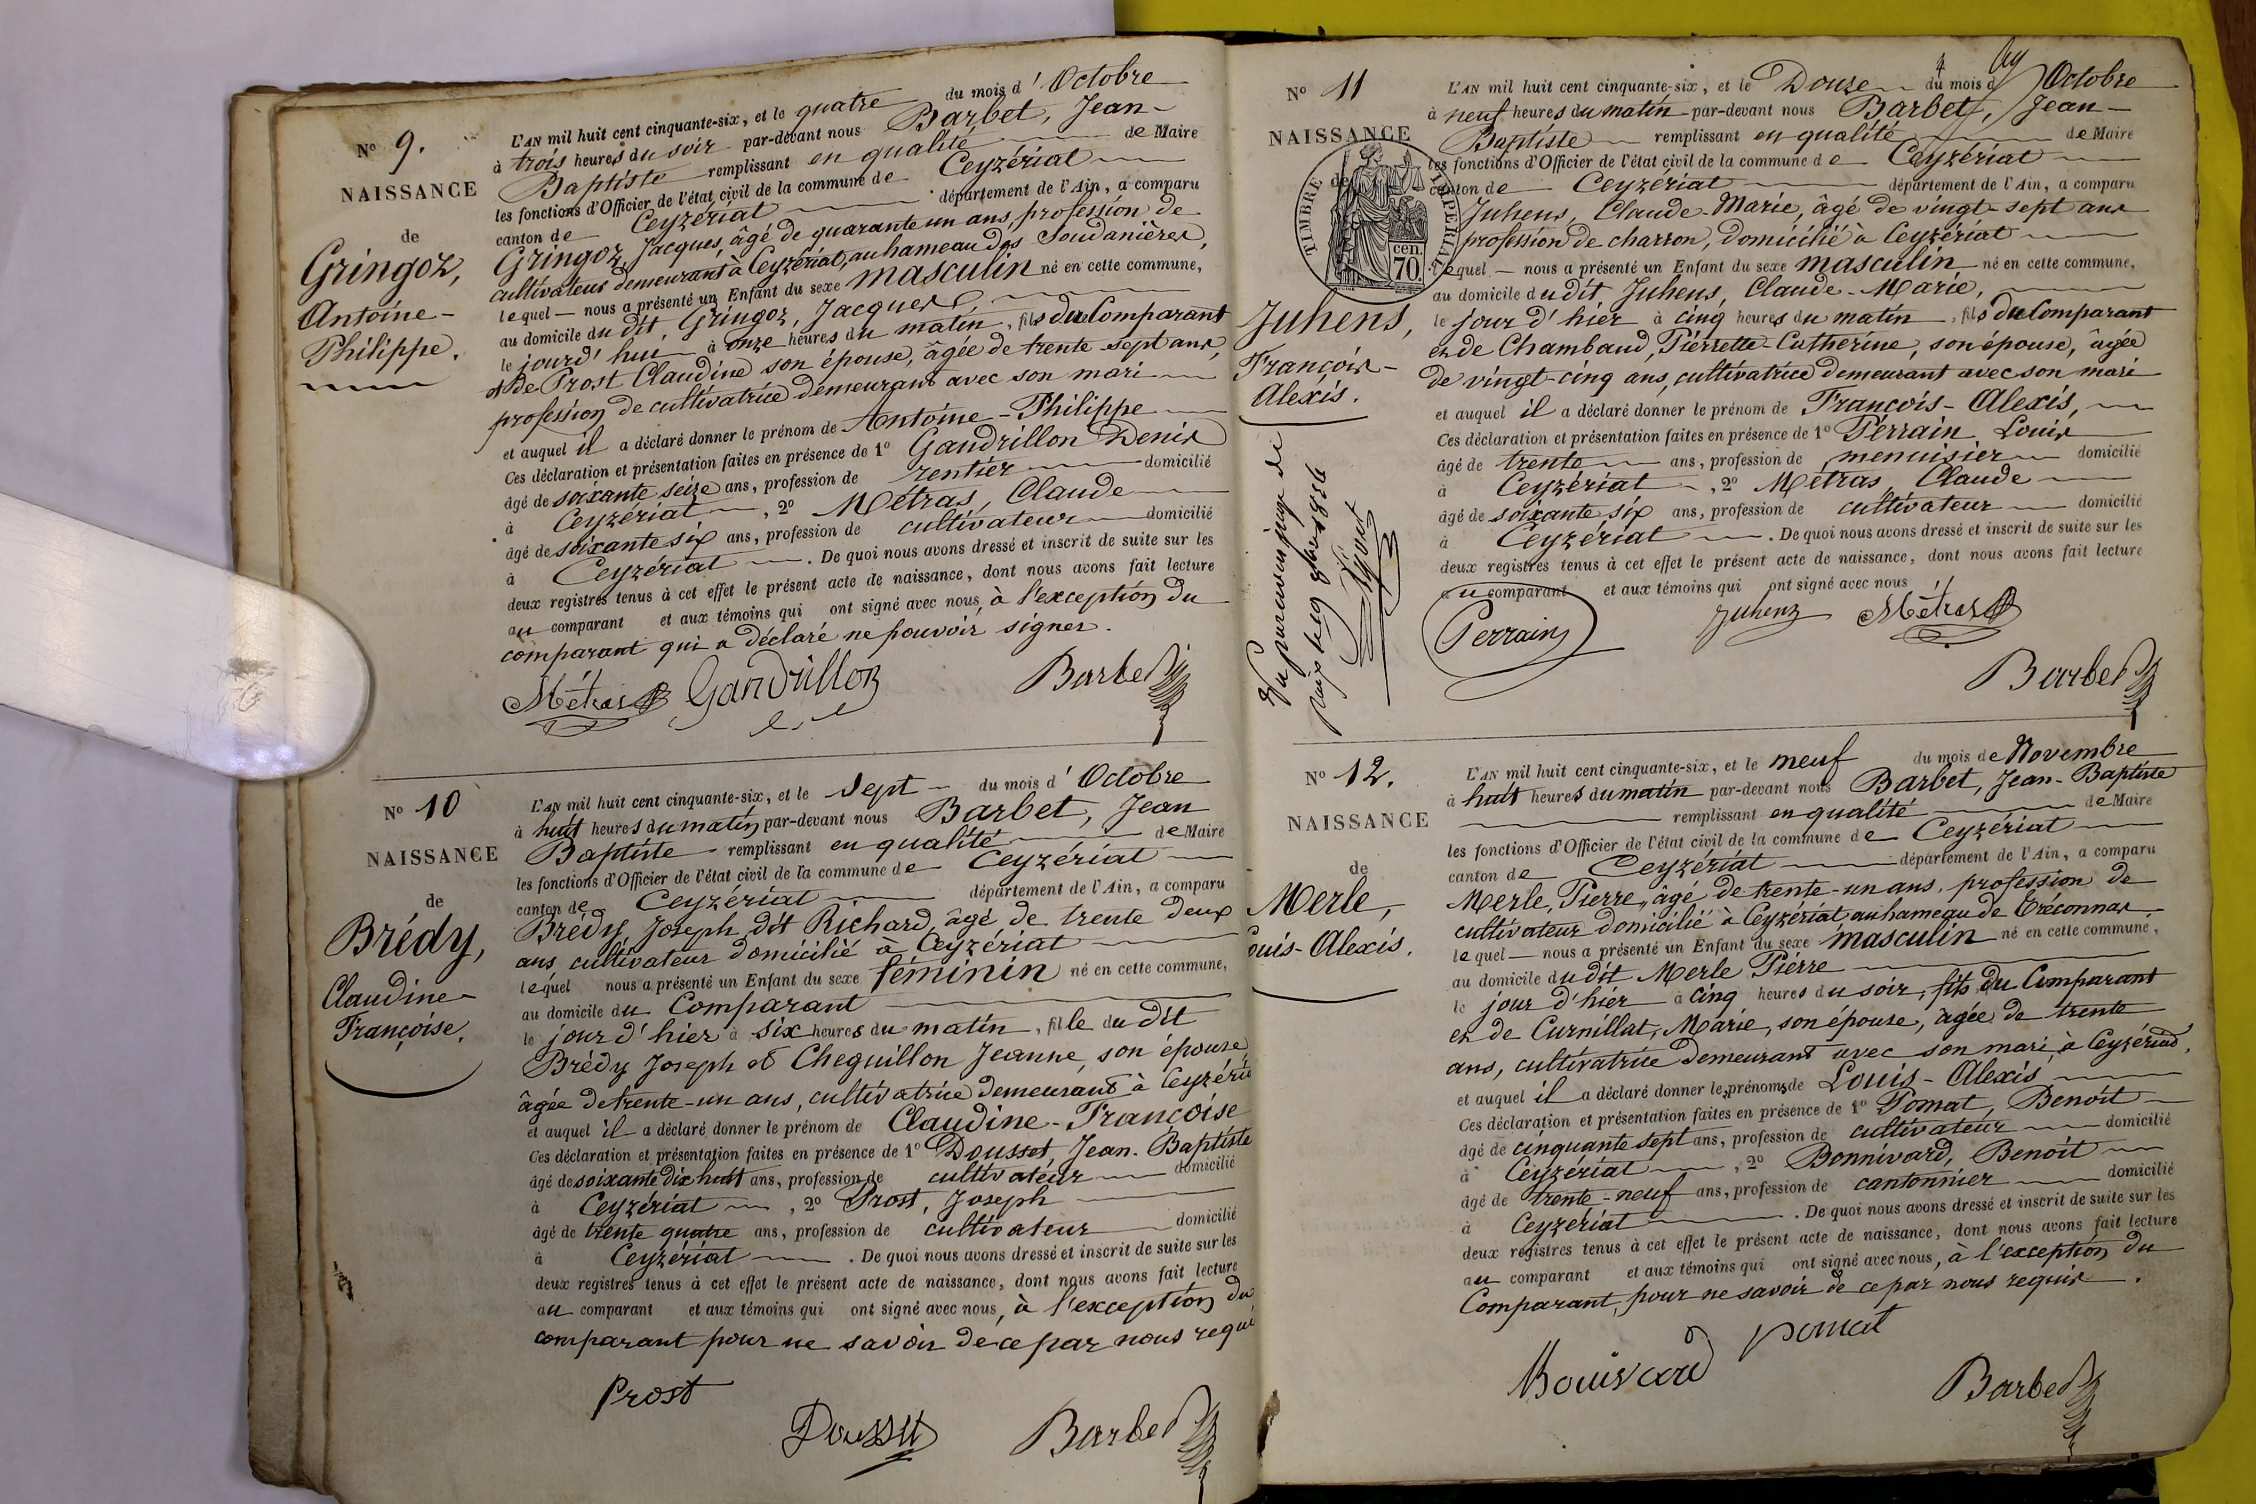 N° 9.
NAISSANCE
de
Gringoz,
Antoine-
Philippe.
L'AN mil huit cent cinquante-six, et le quatre du mois d'Octobre
à trois heures du soir par-devant nous Barbet, Jean-
Baptiste remplissant en qualité de Maire
les fonctions d'Officier de l'état civil de la commune de Ceyzériat
canton de Ceyzériat département de l'Ain, a comparu
Gringoz, Jacques, âgé de quarante un ans, profession de
cultivateur demeurant à Ceyzériat, au hameau des Soudanières,
lequel nous a présenté un Enfant du sexe masculin né en cette commune,
au domicile du dit Gringoz, Jacques,
le jourd'hui à onze heures du matin, fils du Comparant
et de Prost Claudine son épouse, âgée de trente-sept ans,
profession de cultivatrice demeurant avec son mari
et auquel il a déclaré donner le prénom de Antoine-Philippe
Ces déclaration et présentation faites en présence de 1° Gandrillon Denis
âgé de soixante seize ans, profession de rentier domicilié
à Ceyzériat, 2° Métras, Claude
âgé de soixante six ans, profession de cultivateur domicilié
à Ceyzériat. De quoi nous avons dressé et inscrit de suite sur les
deux registres tenus à cet effet le présent acte de naissance, dont nous avons fait lecture
au comparant et aux témoins qui ont signé avec nous, à l'exception du
comparant qui a déclaré ne pouvoir signer.
Métras Gandrillon Barbet
N° 10
NAISSANCE
de
Brédy,
Claudine-
Françoise.
L'AN mil huit cent cinquante-six, et le sept du mois d'Octobre
à huit heures du matin par-devant nous Barbet, Jean
Baptiste remplissant en qualité de Maire
les fonctions d'Officier de l'état civil de la commune de Ceyzériat
canton de Ceyzériat département de l'Ain, a comparu
Brédy Joseph dit Richard, âgé de trente deux
ans cultivateur domicilié à Ceyzériat
lequel nous a présenté un Enfant du sexe féminin né en cette commune,
au domicile du Comparant
le jour d'hier à six heures du matin, fille du dit
Brédy Joseph et Cheguillon Jeanne, son épouse
âgée de trente-un ans, cultivatrice demeurant à Ceyzéria
et auquel il a déclaré donner le prénom de Claudine-Françoise
Ces déclaration et présentation faites en présence de 1° Dousset, Jean-Baptiste
âgé de soixante dix huit ans, profession de cultivateur domicilié
à Ceyzériat, 2° Prost, Joseph
âgé de trente quatre ans, profession de cultivateur domicilié
à Ceyzériat. De quoi nous avons dressé et inscrit de suite sur les
deux registres tenus à cet effet le présent acte de naissance, dont nous avons fait lecture
au comparant et aux témoins qui ont signé avec nous, à l'exception du
comparant pour ne savoir de ce par nous requi
Prost
Dousset Barbet
N° 11
NAISSANCE
de
TIMBRE IMPERIAL
70 cen.
Juhens,
François-
Alexis.
L'AN mil huit cent cinquante-six, et le Douze du mois d'Octobre
à neuf heures du matin par-devant nous Barbet, Jean-
Baptiste remplissant en qualité de Maire
les fonctions d'Officier de l'état civil de la commune de Ceyzériat
canton de Ceyzériat département de l'Ain, a comparu
Juhens, Claude-Marie, âgé de vingt-sept ans
profession de charron, domicilié à Ceyzériat
lequel nous a présenté un Enfant du sexe masculin né en cette commune,
au domicile du dit Juhens, Claude-Marie,
le jour d'hier à cinq heures du matin, fils du Comparant
et de Chambaud, Pierrette-Catherine, son épouse, âgée
de vingt-cinq ans, cultivatrice demeurant avec son mari
et auquel il a déclaré donner le prénom de François-Alexis,
Ces déclaration et présentation faites en présence de 1° Perrain Louis
âgé de trente ans, profession de menuisier domicilié
à Ceyzériat, 2° Métras, Claude
âgé de soixante six ans, profession de cultivateur domicilié
à Ceyzériat. De quoi nous avons dressé et inscrit de suite sur les
deux registres tenus à cet effet le présent acte de naissance, dont nous avons fait lecture
au comparant et aux témoins qui ont signé avec nous
Perrain Juhenz Métras
Barbet
Vu par nous juge de
paix le 9 9bre 1856
N° 12.
NAISSANCE
de
Merle,
ouis-Alexis.
L'AN mil huit cent cinquante-six, et le neuf du mois de Novembre
à huit heures du matin par-devant nous Barbet, Jean-Baptiste
remplissant en qualité de Maire
les fonctions d'Officier de l'état civil de la commune de Ceyzériat
canton de Ceyzériat département de l'Ain, a comparu
Merle, Pierre, âgé de trente-un ans, profession de
cultivateur domicilié à Ceyzériat au hameau de Tréconnas.
lequel nous a présenté un Enfant du sexe masculin né en cette commune,
au domicile du dit Merle Pierre
le jour d'hier à cinq heures du soir, fils du Comparant
et de Curnillat, Marie, son épouse, âgée de trente
ans, cultivatrice demeurant avec son mari à Ceyzériat,
et auquel il a déclaré donner les prénoms de Louis-Alexis
Ces déclaration et présentation faites en présence de 1° Pomat, Benoît
âgé de cinquante sept ans, profession de cultivateur domicilié
à Ceyzériat, 2° Bonnivard, Benoît
âgé de trente-neuf ans, profession de cantonnier domicilié
à Ceyzériat. De quoi nous avons dressé et inscrit de suite sur les
deux registres tenus à cet effet le présent acte de naissance, dont nous avons fait lecture
au comparant et aux témoins qui ont signé avec nous, à l'exception du
Comparant, pour ne savoir de ce par nous requis.
pomat
Barbet